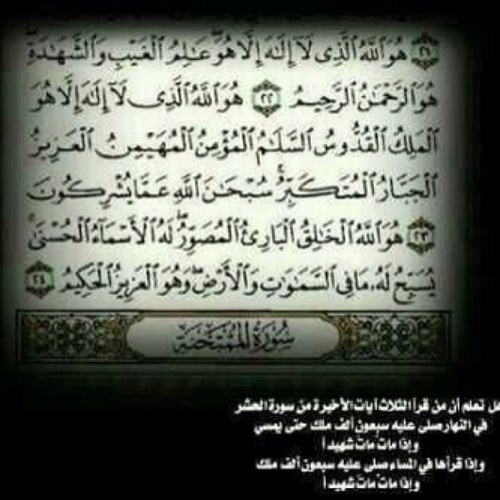 ﴿٢١﴾ هُوَ ٱللَّهُ ٱلَّذِى لَآ إِلَـٰهَ إِلَّا هُوَ ۖ عَـٰلِمُ ٱلْغَيْبِ وَٱلشَّهَـٰدَةِ ۖ
هُوَ ٱلرَّحْمَـٰنُ ٱلرَّحِيمُ ﴿٢٢﴾ هُوَ ٱللَّهُ ٱلَّذِى لَآ إِلَـٰهَ إِلَّا هُوَ
ٱلْمَلِكُ ٱلْقُدُّوسُ ٱلسَّلَـٰمُ ٱلْمُؤْمِنُ ٱلْمُهَيْمِنُ ٱلْعَزِيزُ
ٱلْجَبَّارُ ٱلْمُتَكَبِّرُ ۚ سُبْحَـٰنَ ٱللَّهِ عَمَّا يُشْرِكُونَ
﴿٢٣﴾ هُوَ ٱللَّهُ ٱلْخَـٰلِقُ ٱلْبَارِئُ ٱلْمُصَوِّرُ ۖ لَهُ ٱلْأَسْمَآءُ ٱلْحُسْنَىٰ ۚ
يُسَبِّحُ لَهُۥ مَا فِى ٱلسَّمَـٰوَٰتِ وَٱلْأَرْضِ ۖ وَهُوَ ٱلْعَزِيزُ ٱلْحَكِيمُ ﴿٢٤﴾
سُورَةُ المُمْتَحنَة
هل تعلم أن من قرأ الثلاث أيات الأخيرة من سورة الحشر
في النهار صلى عليه سبعون ألف ملك حتى يمسي
وإذا مات مات شهيدا
وإذا قرأها في المساء صلى عليه سبعون ألف ملك
وإذا مات مات شهيدا